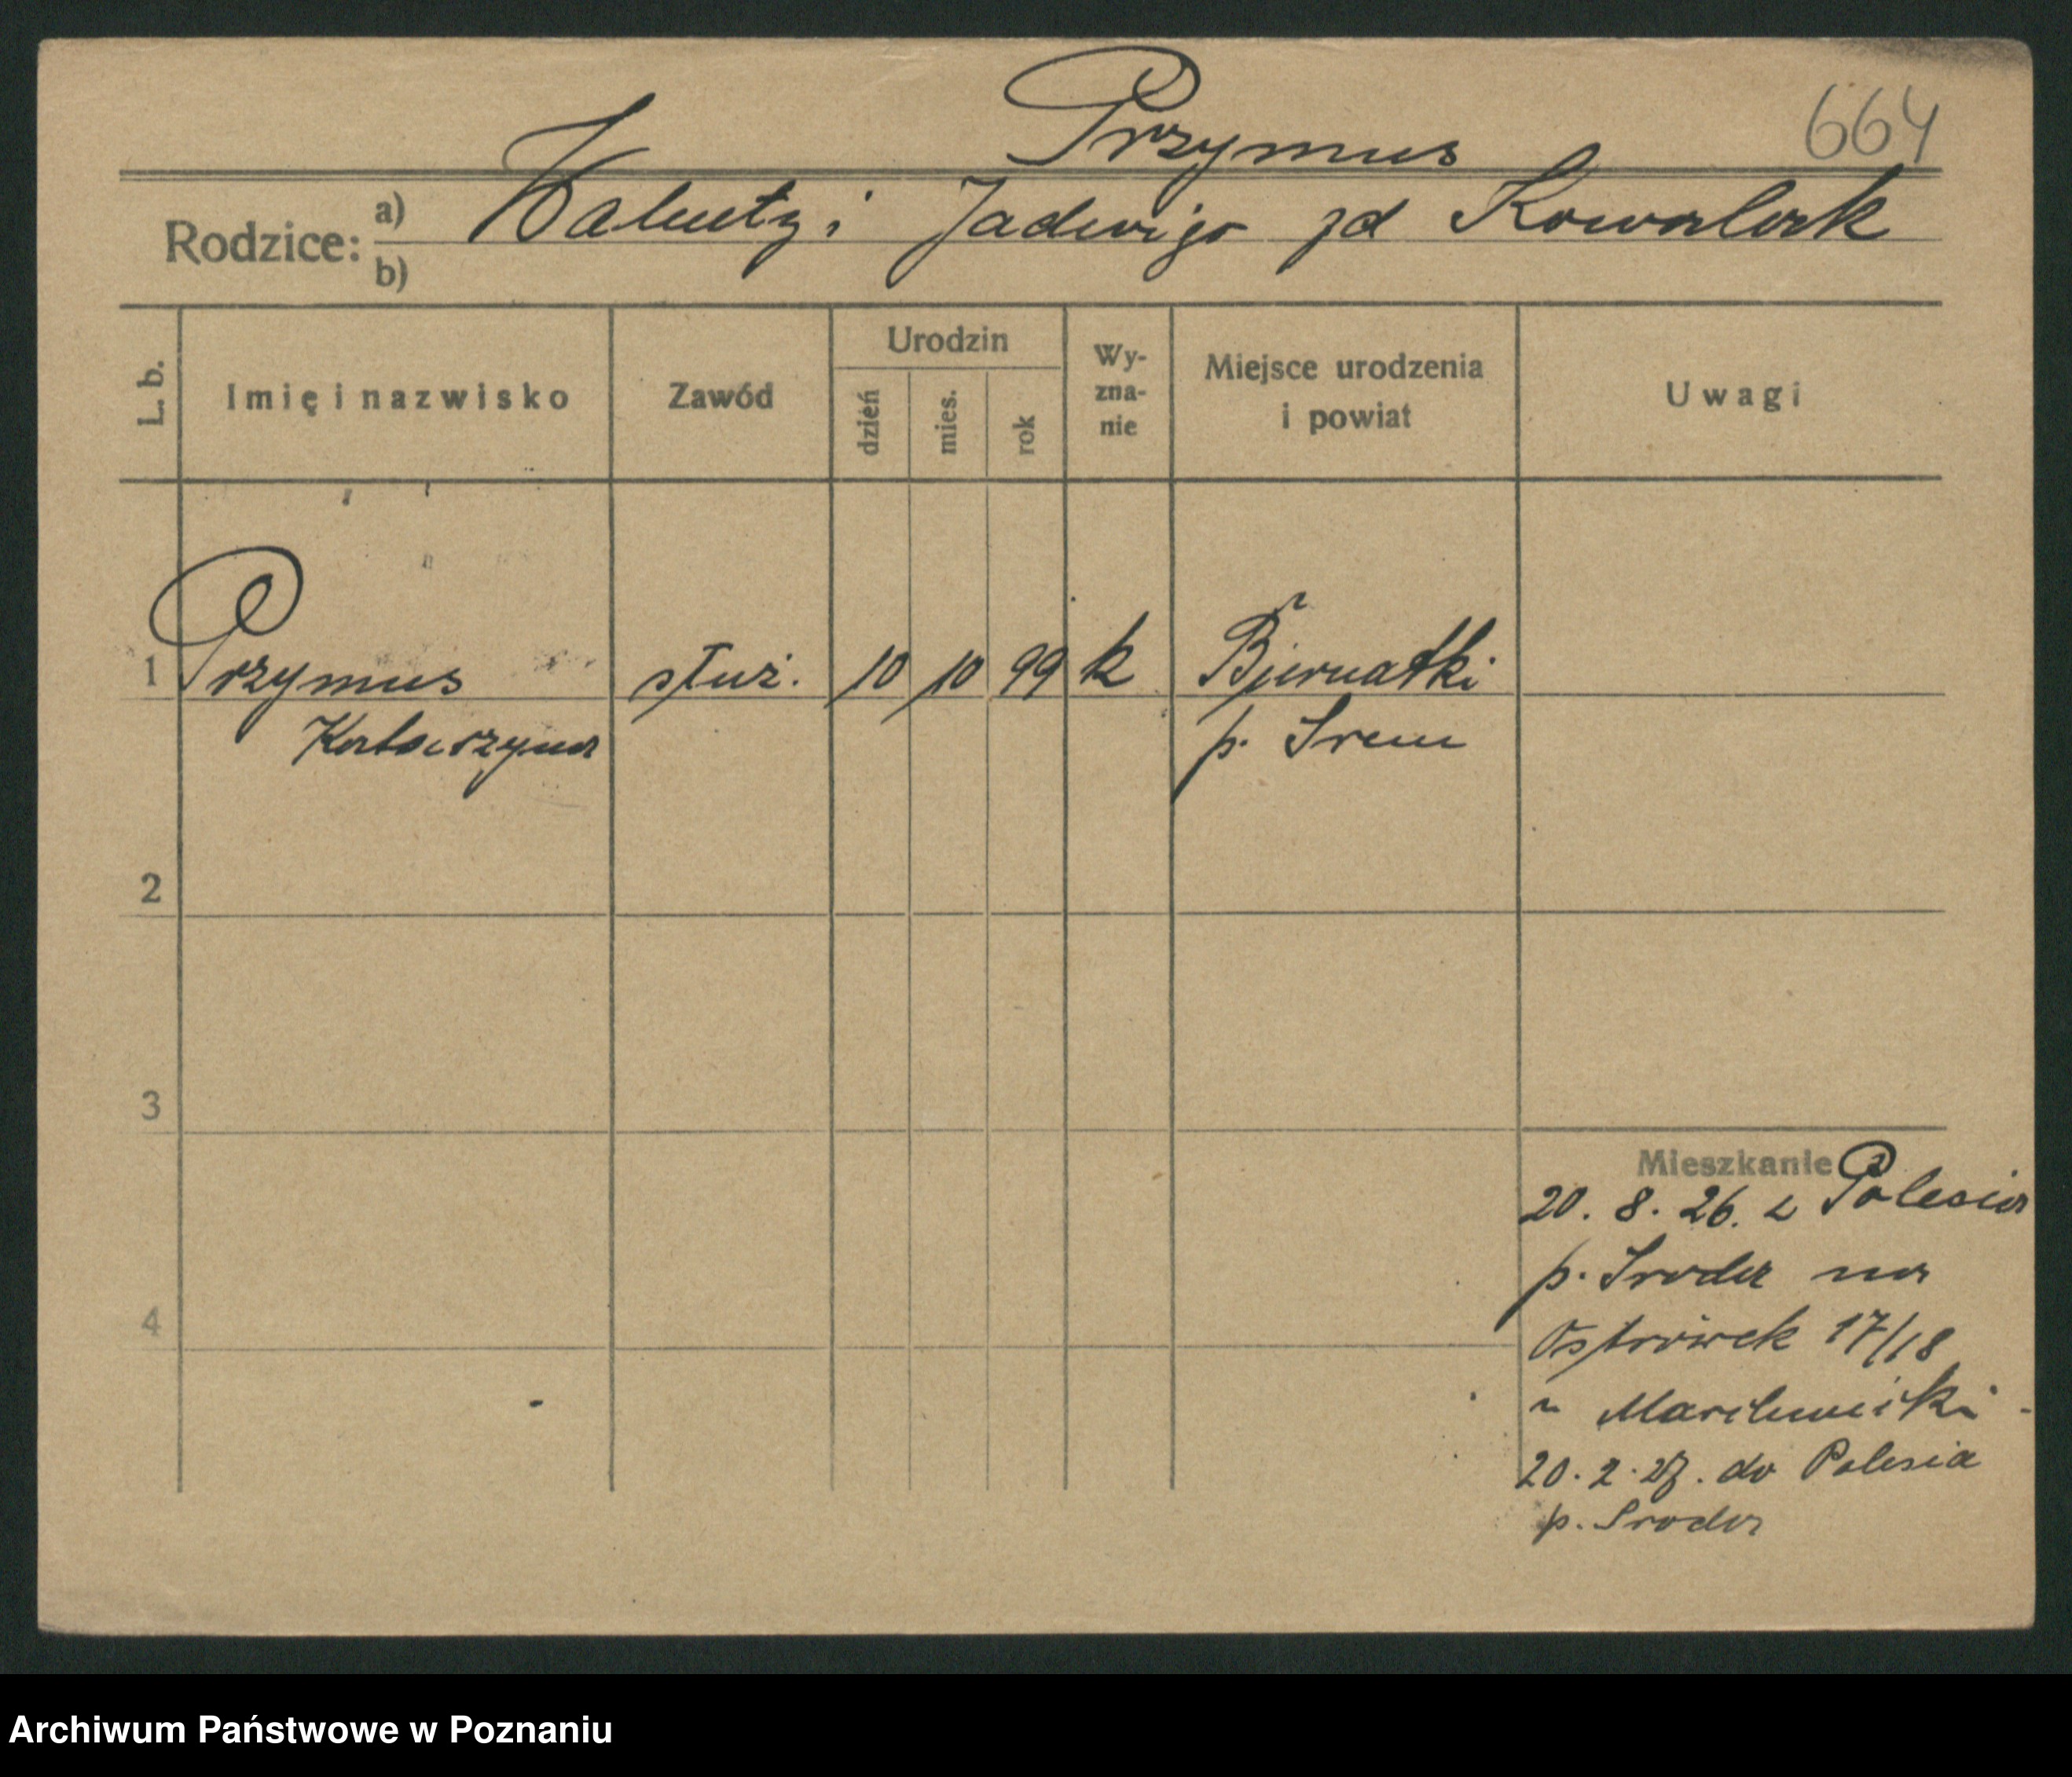 Przymus
664
Rodzice: a) Walenty i Jadwiga zd Kowalak
b)
L. b.
Imię i nazwisko
Zawód
Urodzin
dzień
mies.
rok
Wy-
zna-
nie
Miejsce urodzenia
i powiat
Uwagi
1 Przymus służ. 10 10 99 k Biernatki
Katarzyna p. Srem
2
3
4
Mieszkanie
20. 8. 26. z Polesia
p. Sroda na
Ostrówek 17/18
20. 2. 27. do Polesia
p. Sroda
Archiwum Państwowe w Poznaniu